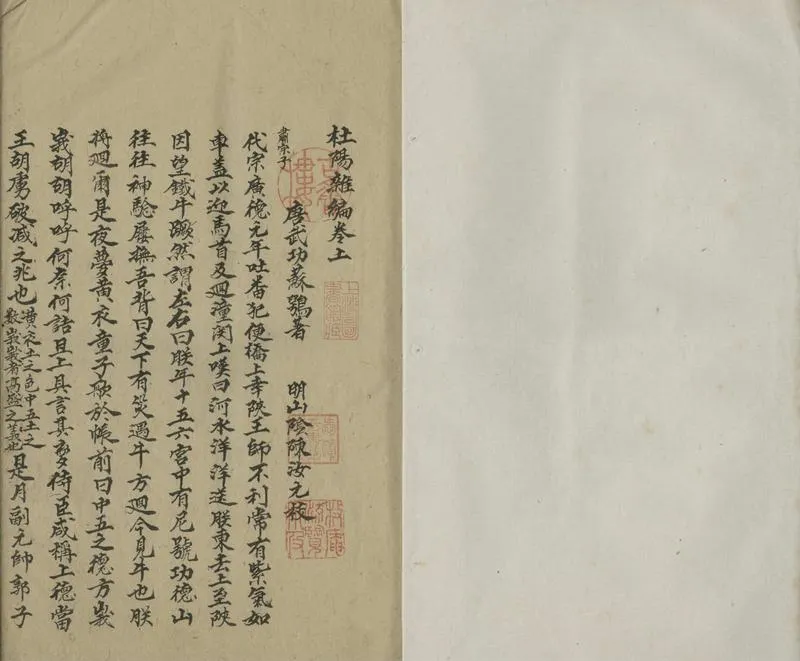 杜陽雜編卷上
唐武功蘇鶚著 明山陰陳汝元校
肅宗子
代宗廣德元年吐番犯便橋上幸陝王師不利常有紫氣如
車蓋以迎馬首及廻潼関上嘆曰河水洋洋送朕東去上至陝
因望鐵牛蹶然謂左右曰朕年十五六宮中有尼號功德山
往往神驗屢撫吾背曰天下有災遇牛方廻今見牛也朕
將廻爾是夜夢黃衣童子歌於帳前曰中五之德方峩
峩胡胡呼呼何奈何詰旦上具言其夢侍臣咸稱上德當
王胡虜破滅之兆也
黃衣土之色中五土之
數峩峩者高盛之義也
是月副元帥郭子